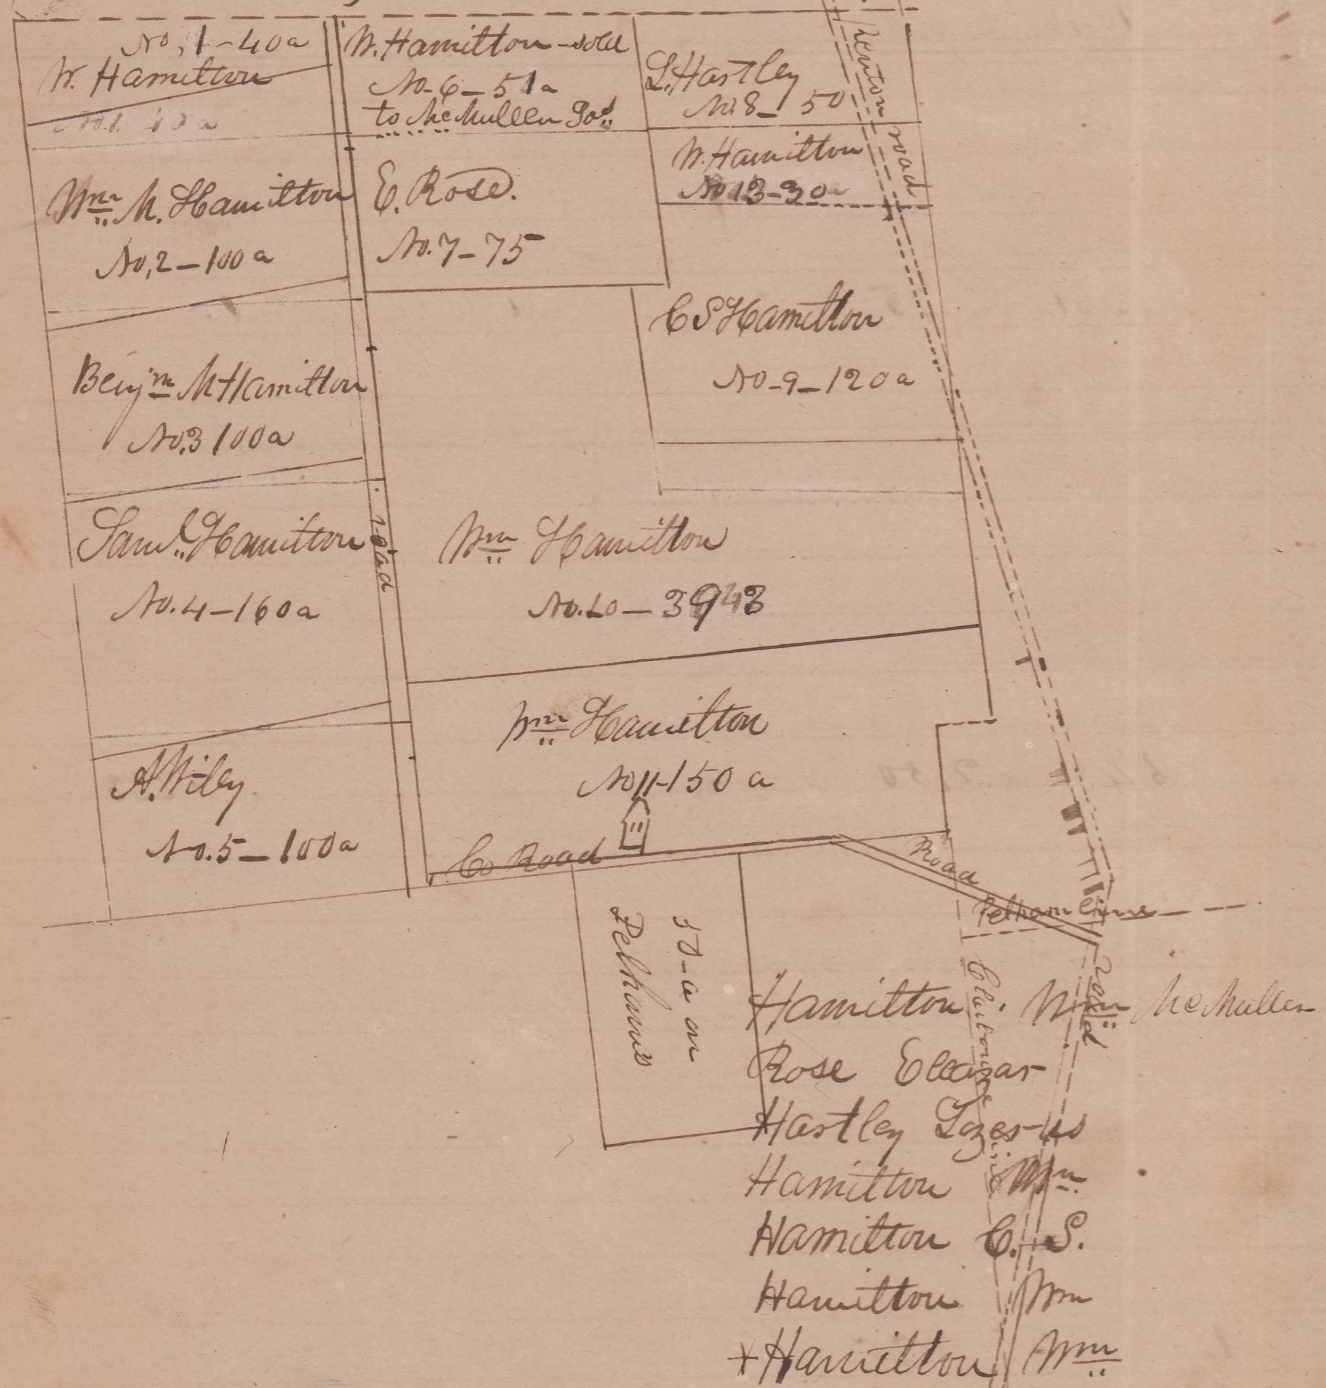 No, 1 - 40a
W. Hamilton
No. 1. 40 a
W. Hamilton - sold
No - 6 - 51a
to McMullen 90d
L. Hartley
No. 8 - 50
Kenton road
W. Hamilton
No 13 - 30
Wm M. Hamilton
No, 2 - 100 a
E. Rose.
No. 7 - 75
C S Hamilton
No - 9 - 120 a
Benjm M Hamilton
No. 3 100a
Saml. Hamilton
No. 4 - 160a
road
Wm Hamilton
No. 10 - 3943
Wm Hamilton
No 11 - 150 a
A. Wiley
No. 5 - 100a
Co Road
Road
Pelham line
50 - a on
Pelhams
road
Hamilton . Wm McMullen
Rose Eleazar
Hartley
Hamilton Wm
Hamilton C. S.
Hamilton Wm
+ Hamilton Wm